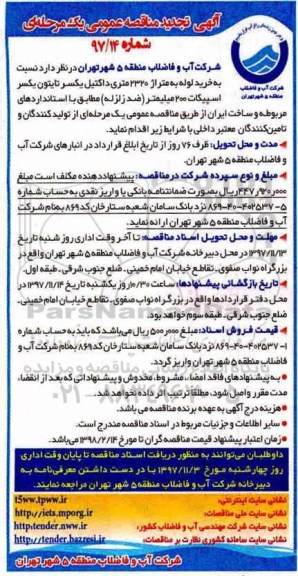 آگهی تجدید مناقصه عمومی یک مرحله‌ای
شماره ۹۷/۱۴
شرکت آب و فاضلاب
منطقه ۵ شهر تهران
شرکت آب و فاضلاب منطقه ۵ شهر تهران در نظر دارد نسبت
به خرید لوله به متراژ ۲۳۲۰ متری داکتیل یکسر تایتون یکسر
اسپیگات ۲۰۰ میلیمتر (ضد زلزله) مطابق با استانداردهای
مربوطه و ساخت ایران از طریق مناقصه عمومی یک مرحله‌ای از تولیدکنندگان و
تامین‌کنندگان معتبر داخلی با شرایط زیر اقدام نماید.
مدت و محل تحویل: ظرف ۷۶ روز از تاریخ ابلاغ قرارداد در انبارهای شرکت آب
و فاضلاب منطقه ۵ شهر تهران.
مبلغ و نوع سپرده شرکت در مناقصه: پیشنهاددهنده مکلف است مبلغ
ریال بصورت ضمانتنامه بانکی یا واریز نقدی به حساب شماره
۵-۴۰۲۵۳۷-۴۰-۸۶۹ نزد بانک سامان شعبه ستارخان کد ۸۶۹ به نام شرکت
آب و فاضلاب منطقه ۵ شهر تهران ارائه نماید.
مهلت و محل تحویل اسناد مناقصه: تا آخر وقت اداری روز شنبه تاریخ
۱۳۹۷/۱۱/۱۳ در محل دبیرخانه شرکت آب و فاضلاب منطقه ۵ شهر تهران واقع در
بزرگراه نواب صفوی، تقاطع خیابان امام خمینی، ضلع جنوب شرقی، طبقه اول.
تاریخ بازگشائی پیشنهادها: ساعت ۱۰/۳۰ روز یکشنبه تاریخ ۱۳۹۷/۱۱/۱۴ در
محل دفتر قراردادها واقع در بزرگراه نواب صفوی، تقاطع خیابان امام خمینی،
ضلع جنوب شرقی، طبقه سوم خواهد بود.
قیمت فروش اسناد: مبلغ ۵۰۰/۰۰۰ ریال می‌باشد که باید به حساب شماره
۱-۴۰۲۵۳۷-۴۰-۸۶۹ نزد بانک سامان شعبه ستارخان کد ۸۶۹ به نام شرکت آب و
فاضلاب منطقه ۵ شهر تهران واریز گردد.
به پیشنهادهای فاقد امضا، مشروط، مخدوش و پیشنهاداتی که بعد از انقضاء
مدت مقرر واصل شود، مطلقا ترتیب اثر داده نخواهد شد.
هزینه درج آگهی به عهده برنده مناقصه می‌باشد.
سایر اطلاعات و جزئیات مربوط در اسناد مناقصه مندرج است.
زمان اعتبار پیشنهاد قیمت مناقصه‌گران تا مورخ ۱۳۹۸/۲/۱۴ می‌باشد.
داوطلبان می‌توانند به منظور دریافت اسناد مناقصه تا پایان وقت اداری
روز چهارشنبه مورخ ۱۳۹۷/۱۱/۳ با در دست داشتن معرفی‌نامه به
دبیرخانه شرکت آب و فاضلاب منطقه ۵ شهر تهران مراجعه نمایند.
نشانی سایت اینترنتی: t5ww.tpww.ir
نشانی سایت ملی مناقصات: http://iets.mporg.ir
نشانی سایت شرکت مهندسی آب و فاضلاب کشور: http://tender.nww.ir
نشانی سایت سامانه کشوری نظارت بر مناقصات: http://tender.bazresi.ir
شرکت آب و فاضلاب منطقه ۵ شهر تهران